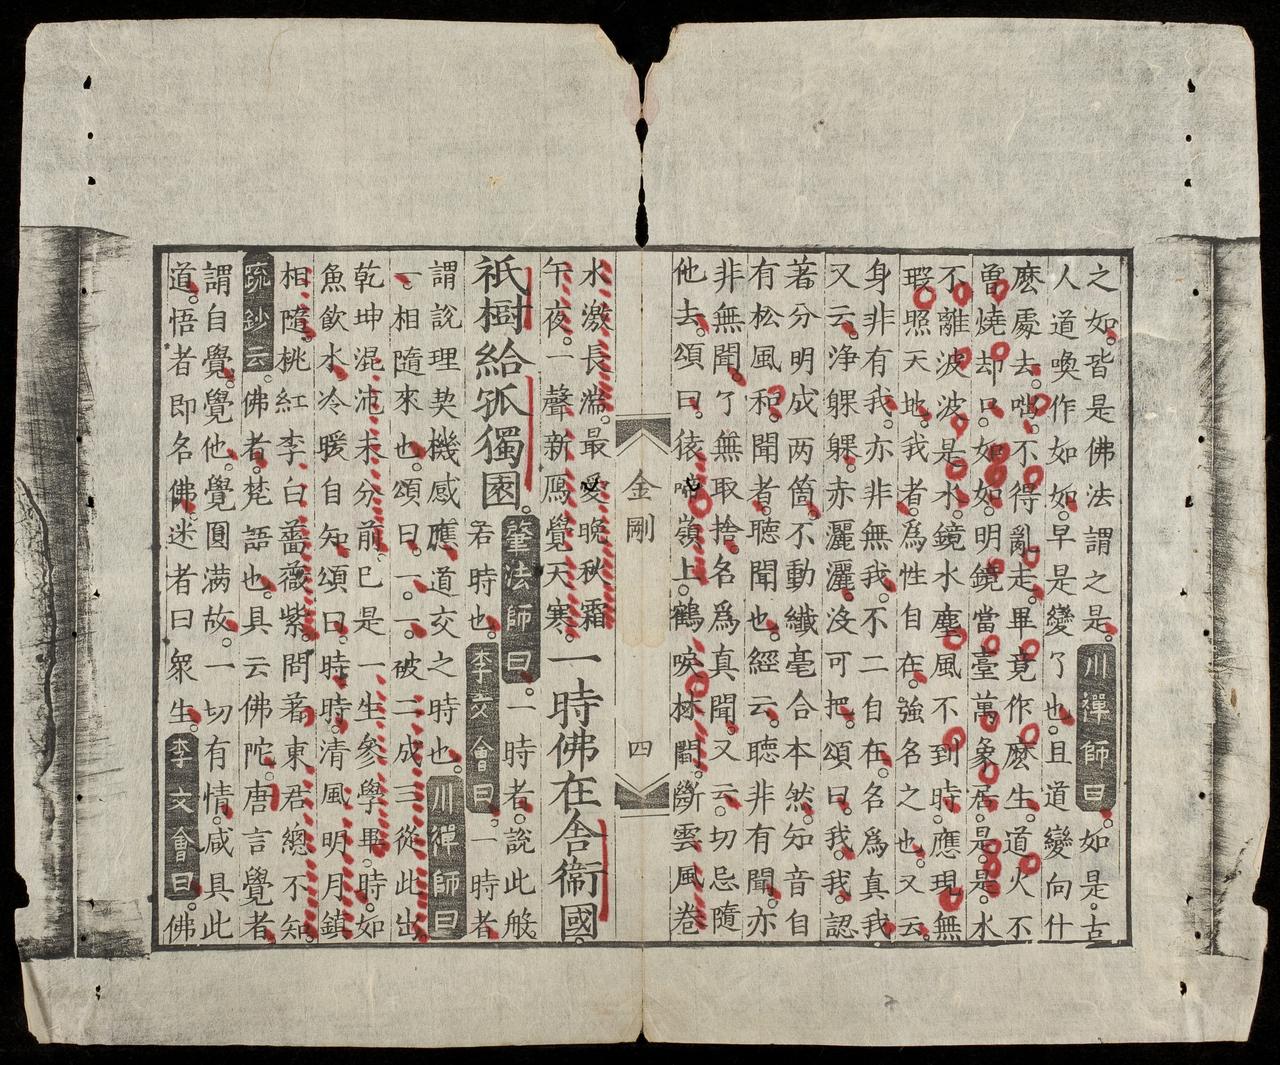 之如。皆是佛法謂之是。川禪師曰。如是。古
人道喚作如如。早是變了也。且道變向什
麽處去。咄。不得亂走。畢竟作麽生。道火不
曾燒却口。如如。明鏡當臺萬象居。是是。水
不離波波是水。鏡水塵風不到時。應現無
瑕照天地。我者。為性自在。強名之也。又云。
身非有我。亦非無我。不二自在。名爲真我
又云。淨躶躶。赤灑灑。沒可把。頌曰。我我。認
著分明成两箇。不動纖毫合本然。知音自
有松風和。聞者。聽聞也。經云。聽非有聞。亦
非無聞。了無取捨。名爲真聞。又云。切忌隨
他去。頌曰。猿啼嶺上。鶴唳林閒。斷雲風卷
金剛 四
水激長湍。最愛晚秋霜
午夜。一聲新鴈覺天寒。
一時佛在舍衞國。
祇樹給孤獨園。
肇法師曰。一時者。說此般
若時也。李文會曰。一時者
謂說理契機感應道交之時也。川禪師曰
一。相隨來也。頌曰。一。一。破二成三從此出
乾坤混沌未分前。已是一生參學畢。時。如
魚飲水冷暖自知。頌曰。時時。清風明月鎮
相隨。桃紅李白薔薇紫。問著東君總不知
疏鈔云。佛者。梵語也。具云佛陀。唐言覺者。
謂自覺。覺他。覺圓满故。一切有情。咸具此
道。悟者即名佛。迷者曰眾生。李文會曰。佛